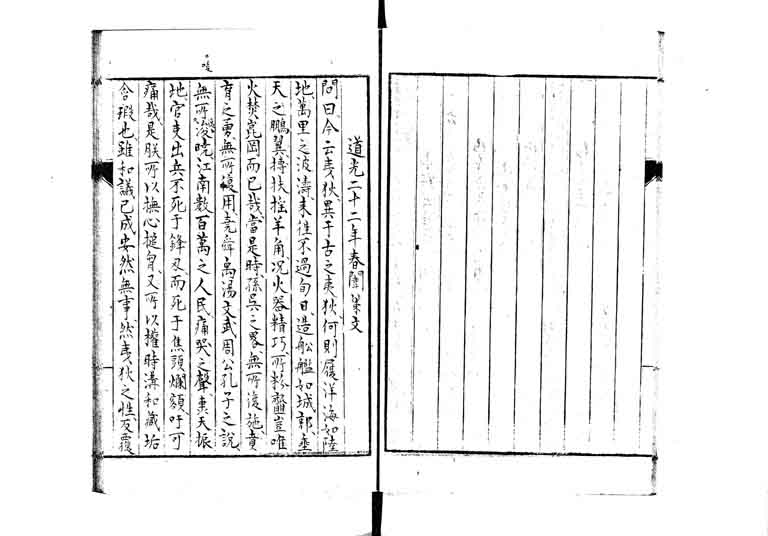 道光二十二年春闈策文
問曰今云夷狄異于古之夷狄何則履洋海如陸
地萬里之波濤来往不過旬日造舩艦如城郭垂
天之鵬翼摶扶搖羊角况火器精巧所粉虀豈唯
火焚崑岡而已哉當是時孫吳之畧無所復施賁
育之勇無所復用堯舜禹湯文武周公孔子之說
無所復曉江南數百萬之人民痛哭之聲裏天振
地官吏出兵不死于鋒刃而死于焦頭爛額吁可
痛哉是朕所以撫心搥胷又所以權時溝和藏垢
含瑕也雖和議已成安然無事然夷狄之性反覆